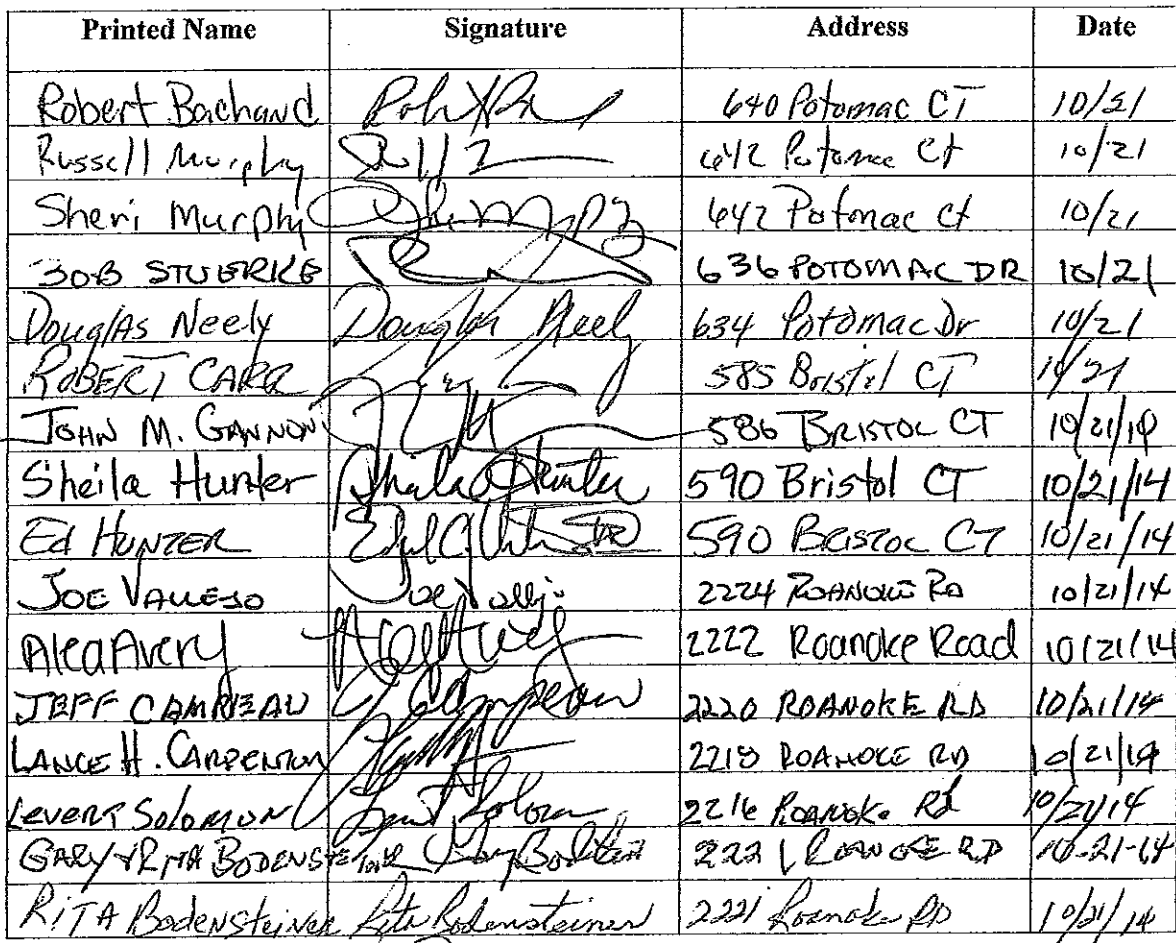 Printed Name Signature Address Date
Robert Bachand 640 Potomac CT 10/21
Russell Murphy 642 Potomac Ct 10/21
Sheri Murphy 642 Potomac Ct 10/21
BOB STUERKE 636 POTOMAC DR 10/21
Douglas Neely Douglas Neely 634 Potomac Dr 10/21
ROBERT CARR 585 Bristol CT 10/21
JOHN M. GANNON 586 BRISTOL CT 10/21/14
Sheila Hunter Sheila Hunter 590 Bristol CT 10/21/14
Ed HUNTER 590 BRISTOL CT 10/21/14
JOE VALLEJO Joe Vallejo 2224 ROANOKE RD 10/21/14
Alea Avery 2222 Roanoke Road 10/21/14
JEFF CAMPEAU J Campeau 2220 ROANOKE RD 10/21/14
LANCE H. CARPENTER 2218 ROANOKE RD 10/21/14
Levert Solomon 2216 ROANOKE Rd 10/21/14
GARY & RITA BODENSTEINER 2221 ROANOKE RD 10-21-14
RITA Bodensteiner Rita Bodensteiner 2221 Roanoke RD 10/21/14